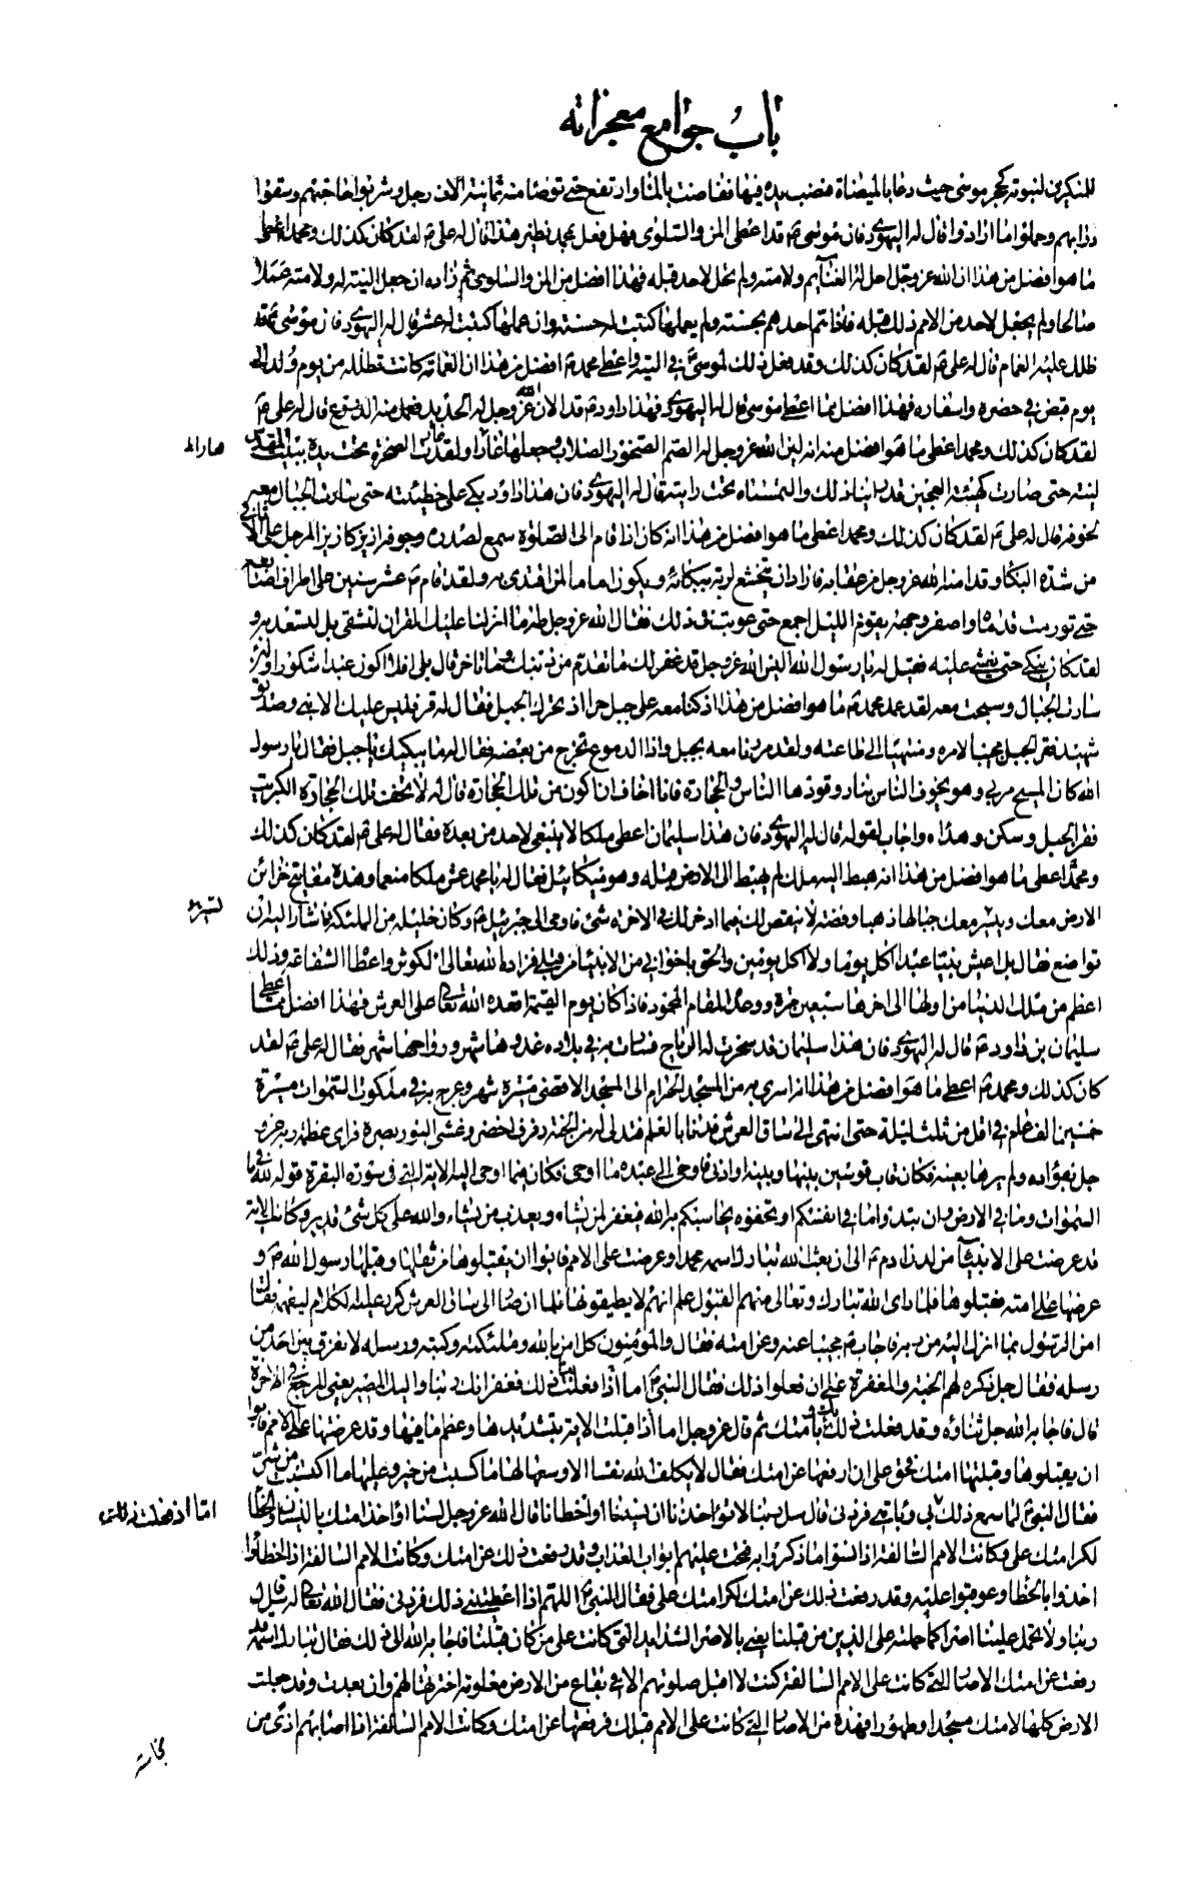 باب جوامع معجزاته
للمنكرين لنبوته كحجر موسى حيث دعا بالميضاة فنصب يده فيها ففاضت بالماء وارتفع حتى توضا منه ثمانية الاف رجل وشربوا حاجتهم وسقوا
دوابهم وحملوا ما ارادوا قال له اليهودي فان موسى ع قد اعطى المن والسلوى فهل فعل بمحمد نظير هذا قال له علي ع لقد كان كذلك ومحمد اعطى
ما هو افضل من هذا ان الله عز وجل احل له الغنايم ولامته ولم يحل لاحد قبله فهذا افضل من المن والسلوى ثم زاده ان جعل النية له ولامته عملا
صالحا ولم يجعل لاحد من الامم ذلك قبله فاذا هم احدهم بحسنة ولم يعملها كتبت له حسنة وان عملها كتبت له عشر قال له اليهودي فان موسى ع قد
ظلل عليه الغمام قال له علي ع لقد كان كذلك وقد فعل ذلك لموسى ع في التيه واعطى محمد ص افضل من هذا ان الغمامة كانت تظلله من يوم ولد الى
يوم قبض في حضره واسفاره فهذا افضل مما اعطى موسى قال له اليهودي فهذا داود ع قد الان الله عز وجل له الحديد فعمل منه الدروع قال له علي ع
لقد كان كذلك ومحمد اعطى ما هو افضل منه انه لين الله عز وجل له الصم الصخور الصلاب وجعلها غارا ولقد غارت الصخرة تحت يده ببيت المقدس
لينة حتى صارت كهيئة العجين قد راينا ذلك والتمسناه تحت رايته قال له اليهودي فان هذا داود بكى على خطيئته حتى سارت الجبال معه
لخوفه قال له علي ع لقد كان كذلك ومحمد اعطى ما هو افضل من هذا انه كان اذا قام الى الصلوة سمع لصدره وجوفه ازيز كازيز المرجل على الاثافي
من شدة البكاء وقد امنه الله عز وجل من عقابه فاراد ان يتخشع لربه ببكائه ويكون اماما لمن اقتدى به ولقد قام ع عشر سنين على اطراف اصابعه
حتى تورمت قدماه واصفر وجهه يقوم الليل اجمع حتى عوتب في ذلك فقال الله عز وجل طه ما انزلنا عليك القران لتشقى بل لتسعد به و
لقد كان يبكي حتى يغشى عليه فقيل له يا رسول الله اليس الله عز وجل قد غفر لك ما تقدم من ذنبك وما تاخر قال بلى افلا اكون عبدا شكورا ولئن
سارت الجبال وسبحت معه لقد عمل محمد ص ما هو افضل من هذا اذ كنا معه على جبل حرا اذ تحرك الجبل فقال له قر فليس عليك الا نبي وصديق
شهيد فقر الجبل مجيبا لامره ومنتهيا الى طاعته ولقد مررنا معه بجبل واذا الدموع تخرج من بعضه فقال له ما يبكيك يا جبل فقال يا رسول
الله كان المسيح مر بي وهو يخوف الناس بنار وقودها الناس والحجارة فانا اخاف ان اكون من تلك الحجارة قال له لا تخف تلك الحجارة الكبريت
فقر الجبل وسكن وهدأ واجاب لقوله قال له اليهودي فان هذا سليمان اعطي ملكا لا ينبغي لاحد من بعده فقال له علي ع لقد كان كذلك
ومحمد اعطى ما هو افضل من هذا انه هبط اليه ملك لم يهبط الى الارض قبله وهو ميكائيل فقال له يا محمد عش ملكا منعما وهذه مفاتيح خزائن
الارض معك ويسير معك جبالها ذهبا وفضة لا ينقص لك فيما ادخر لك في الاخرة شئ فاومى الى جبرئيل ع وكان خليله من الملئكة فاشار اليه ان
تواضع فقال بل اعيش نبيا عبدا اكل يوما ولا اكل يومين والحق باخواني من الانبياء من قبلي فزاده الله تعالى الكوثر واعطاه الشفاعة وذلك
اعظم من ملك الدنيا من اولها الى اخرها سبعين مرة ووعده المقام المحمود فاذا كان يوم القيمة اقعده الله تعالى على العرش فهذا افضل مما اعطى
سليمان بن داود ع قال له اليهودي فان هذا سليمان قد سخرت له الرياح فسارت به في بلاده غدوها شهر ورواحها شهر فقال له علي ع لقد
كان كذلك ومحمد ص اعطى ما هو افضل من هذا انه اسري به من المسجد الحرام الى المسجد الاقصى مسيرة شهر وعرج به في ملكوت السموات مسيرة
خمسين الف عام في اقل من ثلث ليلة حتى انتهى الى ساق العرش فدنا بالعلم فتدلى له من الجنة رفرف اخضر وغشى النور بصره فراى عظمة ربه عز و
جل بفؤاده ولم يرها بعينه فكان قاب قوسين بينها وبينه او ادنى فاوحى الى عبده ما اوحى فكان فيما اوحى اليه الاية التي في سورة البقرة قوله لله ما في
السموات وما في الارض وان تبدوا ما في انفسكم او تخفوه يحاسبكم به الله فيغفر لمن يشاء ويعذب من يشاء والله على كل شئ قدير وكانت الاية
قد عرضت على الانبيآء من لدن ادم ع الى ان بعث الله تبارك اسمه محمدا وعرضت على الامم فابوا ان يقبلوها من ثقلها وقبلها رسول الله ص و
عرضها على امته فقبلوها فلما راى الله تبارك وتعالى منهم القبول علم انهم لا يطيقونها فلما ان صار الى ساق العرش كرر عليه الكلام ليفهمه فقال
امن الرسول بما انزل اليه من ربه فاجاب ص مجيبا عنه وعن امته فقال والمؤمنون كل امن بالله وملئكته وكتبه ورسله لا نفرق بين احد من
رسله فقال جل ذكره لهم الجنة والمغفرة على ان فعلوا ذلك فقال النبي ص اما اذا فعلت بنا ذلك فغفرانك ربنا واليك المصير يعني المرجع في الاخرة
قال فاجابه الله جل ثناؤه وقد فعلت ذلك بك وبامتك ثم قال عز وجل اما اذا قبلت الاية بتشديدها وعظم ما فيها وقد عرضتها على الامم فابوا
ان يقبلوها وقبلتها امتك فحق علي ان ارفعها عن امتك فقال لا يكلف الله نفسا الا وسعها لها ما كسبت من خير وعليها ما اكتسبت من شر
فقال النبي ص لما سمع ذلك اما اذ فعلت ذلك بي وبامتي فزدني قال سل ربنا لا تؤاخذنا ان نسينا او اخطانا قال الله عز وجل لست اؤاخذ امتك بالنسيان والخطا
لكرامتك علي وكانت الامم السالفة اذا نسوا ما ذكروا به فتحت عليهم ابواب العذاب وقد رفعت ذلك عن امتك وكانت الامم السالفة اذا اخطاوا
اخذوا بالخطا وعوقبوا عليه وقد رفعت ذلك عن امتك لكرامتك علي فقال النبي ص اللهم اذا اعطيتني ذلك فزدني فقال الله تعالى له سل قال
ربنا ولا تحمل علينا اصرا كما حملته على الذين من قبلنا يعني بالاصر الشدايد التي كانت على من كان قبلنا فاجابه الله الى ذلك فقال تبارك اسمه قد
رفعت عن امتك الاصار التي كانت على الامم السالفة كنت لا اقبل صلوتهم الا في بقاع من الارض معلومة اخترتها لهم وان بعدت وقد جعلت
الارض كلها لامتك مسجدا وطهورا فهذه من الاصار التي كانت على الامم قبلك فرفعتها عن امتك وكانت الامم السالفة اذا اصابهم اذى من
نجاسة